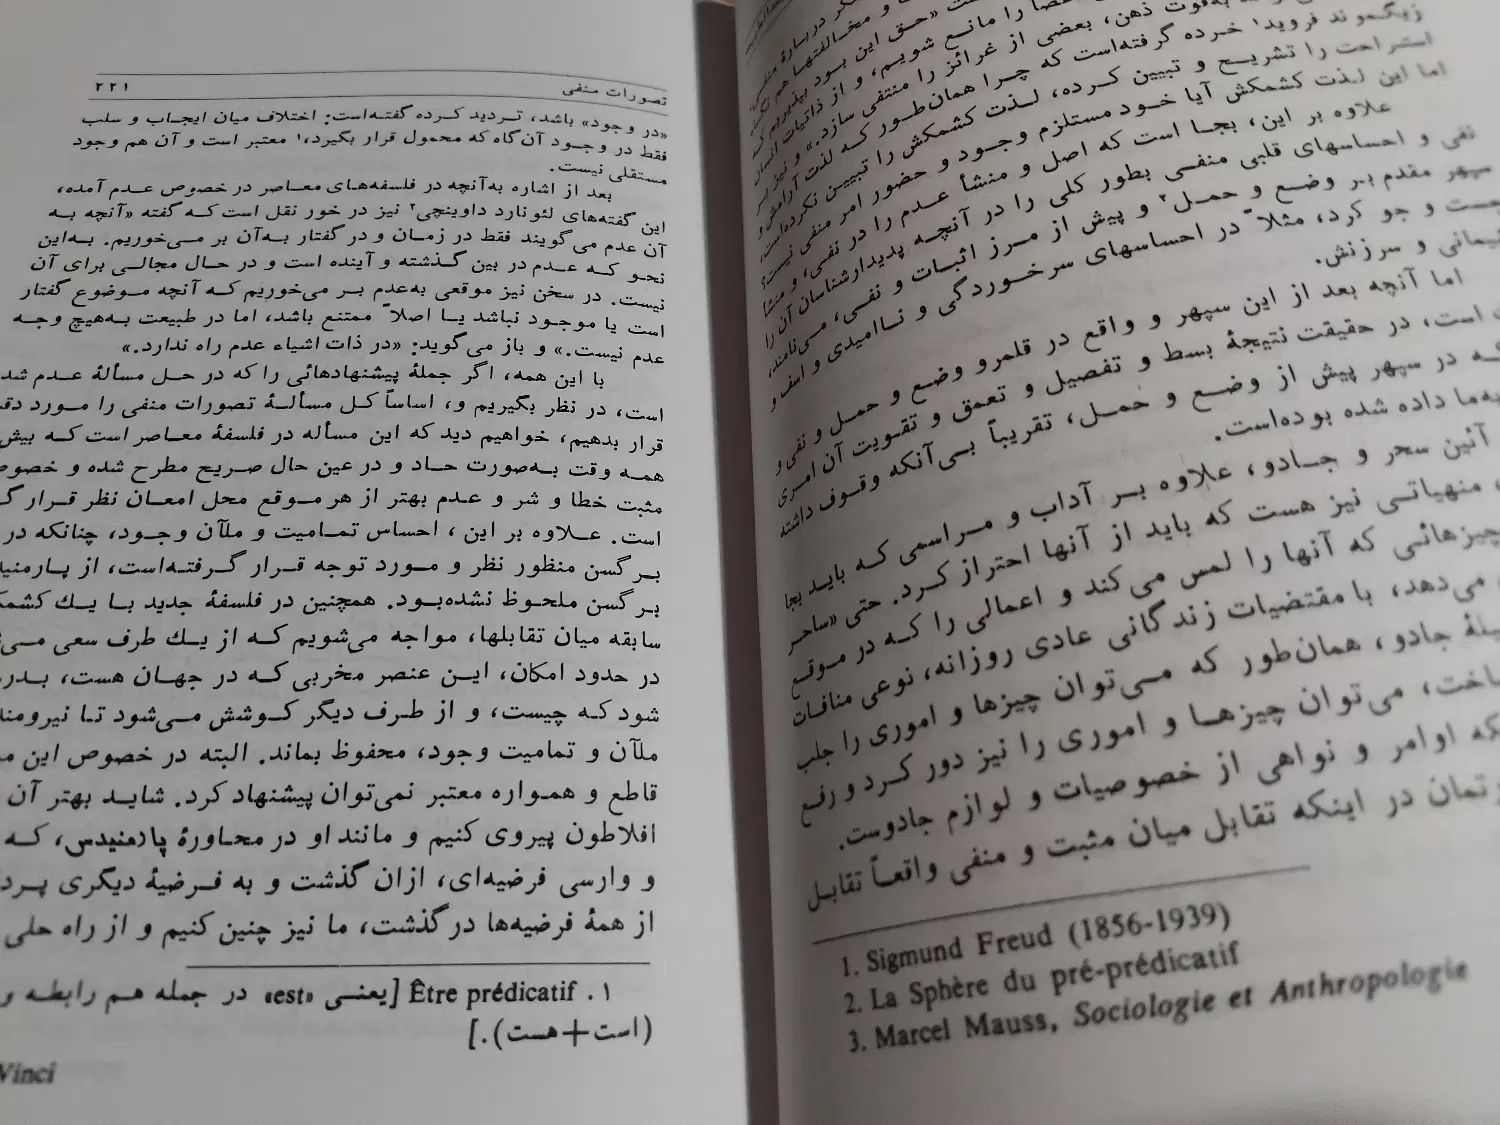 تصورات منفی ۲۲۱
«در وجود» باشد، تردید کرده گفته‌است: اختلاف میان ایجاب و سلب
فقط در وجود آن‌گاه که محمول قرار بگیرد،۱ معتبر است و آن هم وجود
مستقلی نیست.
بعد از اشاره به‌آنچه در فلسفه‌های معاصر در خصوص عدم آمده،
این گفته‌های لئونارد داوینچی۲ نیز در خور نقل است که گفته «آنچه به
آن عدم می‌گویند فقط در زمان و در گفتار به‌آن بر می‌خوریم. به‌این
نحو که عدم در بین گذشته و آینده است و در حال مجالی برای آن
نیست. در سخن نیز موقعی به‌عدم بر می‌خوریم که آنچه موضوع گفتار
است یا موجود نباشد یا اصلاً ممتنع باشد، اما در طبیعت به‌هیچ وجه
عدم نیست.» و باز می‌گوید: «در ذات اشیاء عدم راه ندارد.»
با این همه، اگر جملهٔ پیشنهادهائی را که در حل مسألهٔ عدم شد
است، در نظر بگیریم و، اساساً کل مسألهٔ تصورات منفی را مورد
قرار بدهیم، خواهیم دید که این مسأله در فلسفهٔ معاصر است که بیش
همه وقت به‌صورت حاد و در عین حال صریح مطرح شده و
مثبت خطا و شر و عدم بهتر از هر موقع محل امعان نظر قرار
است. علاوه بر این، احساس تمامیت و ملآن وجود، چنانکه در
برگسن منظور نظر و مورد توجه قرار گرفته‌است، از
برگسن ملحوظ نشده‌بود. همچنین در فلسفهٔ جدید با یك
سابقه میان تقابلها، مواجه می‌شویم که از یك طرف سعی
در حدود امکان، این عنصر مخربی که در جهان هست،
شود که چیست، و از طرف دیگر کوشش می‌شود تا
ملآن و تمامیت وجود، محفوظ بماند. البته در خصوص این
قاطع و همواره معتبر نمی‌توان پیشنهاد کرد. شاید بهتر آن
افلاطون پیروی کنیم و مانند او در محاورهٔ پارمنیدس، که
و وارسی فرضیه‌ای، ازان گذشت و به فرضیهٔ دیگری
از همهٔ فرضیه‌ها درگذشت، ما نیز چنین کنیم و از راه حلی
۱. Être prédicatif [یعنی «est» در جمله هم رابطه و
(است+هست).]
Vinci
و مخالفتها هم
«حق این بود بپذیریم که
به‌قوت ذهن، بعضی از غرائز را منتفی سازد.» و نیز بر
زیگموند فروید۱ خرده گرفته‌است که چرا همان‌طور که لذت آرامش و
استراحت را تشریح و تبیین کرده، لذت کشمکش را تبیین نکرده‌است،
اما این لذت کشمکش آیا خود مستلزم وجود و حضور امر منفی نیست؟
علاوه بر این، بجا است که اصل و منشأ عدم را در نفی، و منشأ
نفی و احساسهای قلبی منفی بطور کلی را در آنچه پدیدارشناسان آن را
سپهر مقدم بر وضع و حمل۲ و پیش از مرز اثبات و نفی، می‌نامند،
و جو کرد، مثلاً در احساسهای سرخوردگی و ناامیدی و اسف و
و سرزنش.
اما آنچه بعد از این سپهر و واقع در قلمرو وضع و حمل و نفی و
است، در حقیقت نتیجهٔ بسط و تفصیل و تعمق و تقویت آن امری
که در سپهر پیش از وضع و حمل، تقریباً بی‌آنکه وقوف داشته
به‌ما داده شده بوده‌است.
آئین سحر و جادو، علاوه بر آداب و مراسمی که باید بجا
منهیاتی نیز هست که باید از آنها احتراز کرد. حتی «ساحر
چیزهائی که آنها را لمس می‌کند و اعمالی را که در موقع
می‌دهد، با مقتضیات زندگانی عادی روزانه، نوعی منافات
جادو، همان‌طور که می‌توان چیزها و اموری را جلب
می‌توان چیزها و اموری را نیز دور کرد و رفع
که اوامر و نواهی از خصوصیات و لوازم جادوست.
در اینکه تقابل میان مثبت و منفی واقعاً تقابل
1. Sigmund Freud (1856-1939)
2. La Sphère du pré-prédicatif
3. Marcel Mauss, Sociologie et Anthropologie